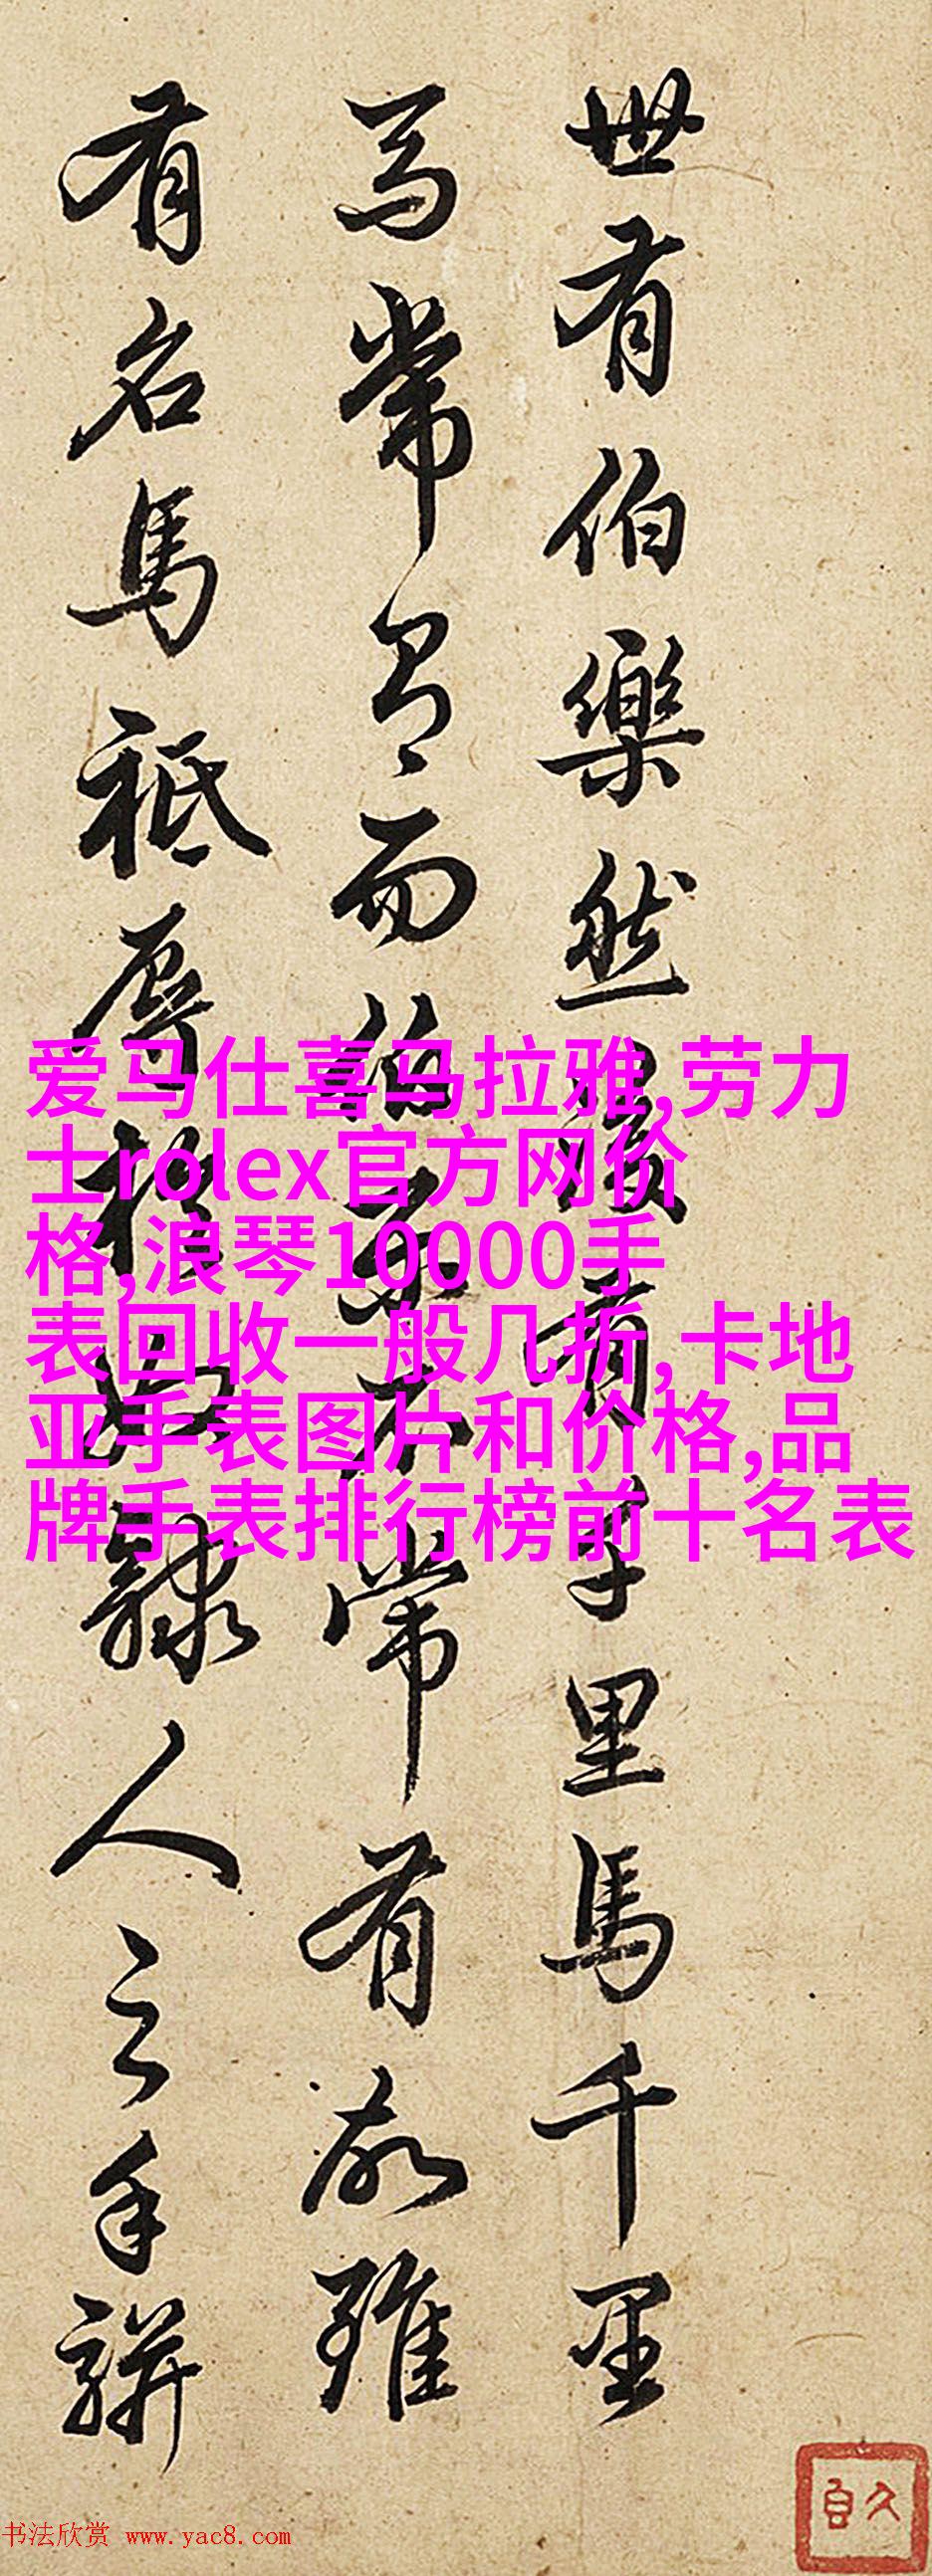 世有伯樂然後有千里馬千里
馬常有而伯樂不常有故雖
有名馬祗辱於奴隸人之手駢
爱马仕喜马拉雅,劳力
士rolex官方网价
格,浪琴10000手
表回收一般几折,卡地
亚手表图片和价格,品
牌手表排行榜前十名表
书法欣赏 www.yac8.com